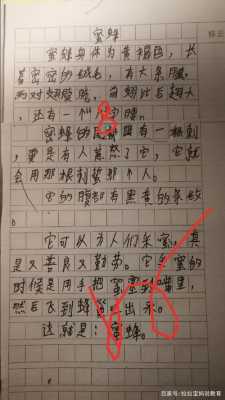 蜜蜂
蜜蜂身体为黄褐色，长
着密密的绒毛，有六条腿，
两对翅膀，前翅比后翅大
，还有一个 腰。
蜜蜂的尾部有一根刺
，要是有人惹怒了它，它就
会用那根刺蛰那个人。
它的腹部有黑黄的条纹
。
它可以为人们采蜜，真
是又善良又勤劳。它采蜜的
时候是用手把 蜜 里，
然后飞到蜂 出来。
这就是：蜜蜂。
搜狐号@拉拉宝妈说教育